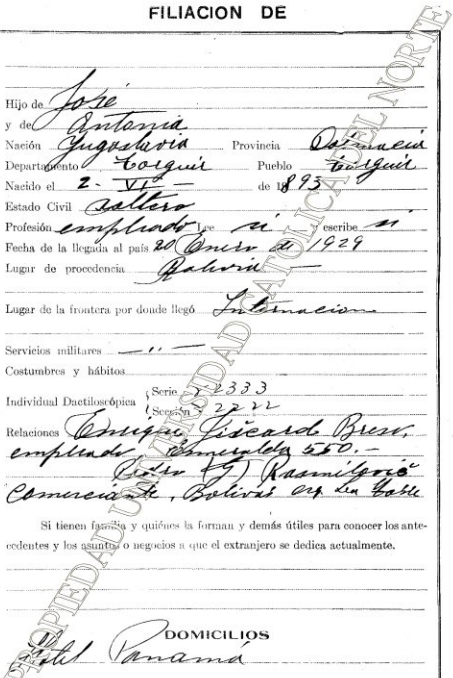 FILIACION DE
Hijo de José
y de Antonia
Nación Yugoslavia Provincia Dalmacia
Departamento Pueblo
Nacido el 2 - VI - de 1893
Estado Civil soltero
Profesión empleado Lee si escribe si
Fecha de la llegada al país 20 Enero de 1929
Lugar de procedencia Bolivia -
Lugar de la frontera por donde llegó Internacional
Servicios militares
Costumbres y hábitos
Individual Dactiloscópica Serie V-2333
Sección V-2222
Relaciones Enrique
empleado, Esmeralda 550.-
Pedro G)
Comerciante, Bolivar esq.
Si tienen familia y quiénes la forman y demás útiles para conocer los ante-
cedentes y los asuntos o negocios a que el extranjero se dedica actualmente.
DOMICILIOS
Hotel Panamá
PROPIEDAD UNIVERSIDAD CATOLICA DEL NORTE